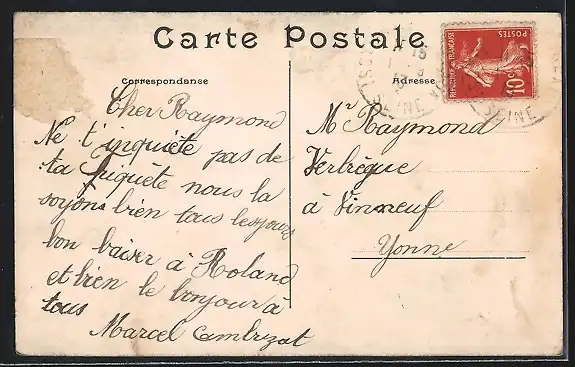 Carte Postale
Correspondance
Adresse
POSTES
REPUBLIQUE FRANCAISE
10c
SEINE
Cher Raymond
Ne t'inquiete pas de
ta Fiquête nous la
soyons bien tous les jours
bon baiser à Roland
et bien le bonjour à
tous
Marcel Cambuzat
Mr Raymond
Verbèque
à Vinneuf
Yonne